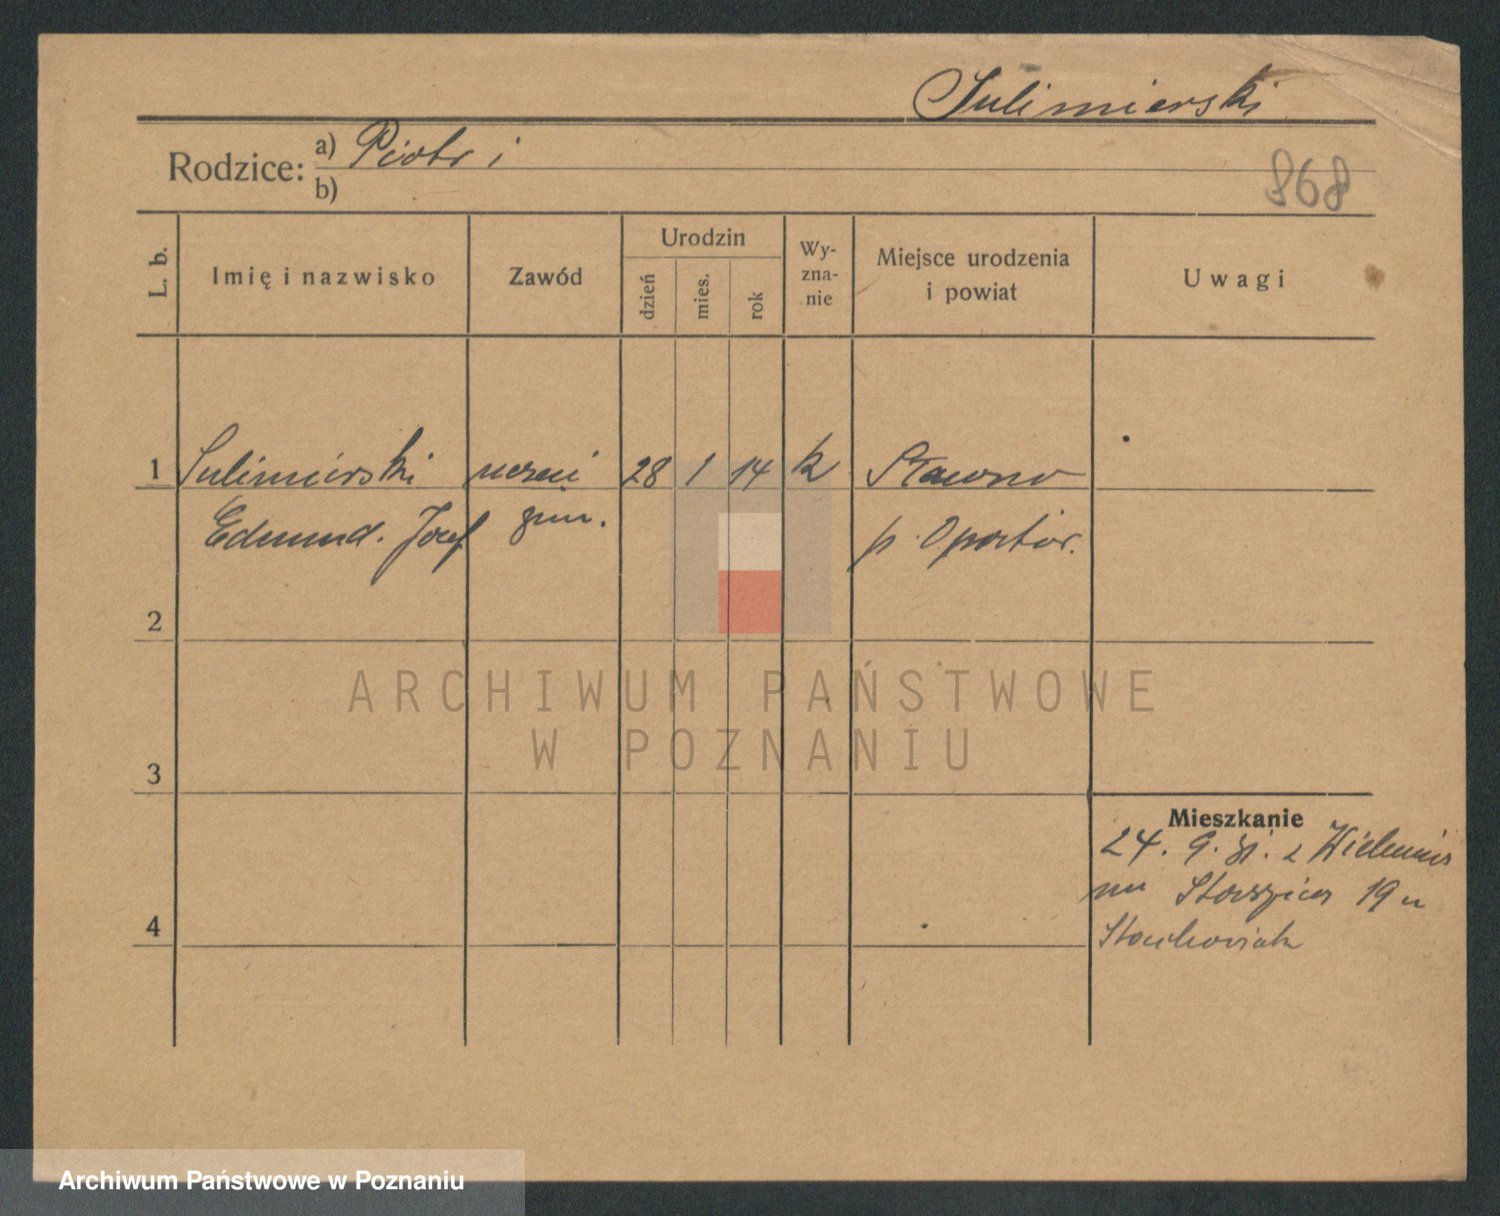 Sulimierski
Rodzice: a) Piotr i
b)
868
L. b.
Imię i nazwisko
Zawód
Urodzin
dzień
mies.
rok
Wy-
zna-
nie
Miejsce urodzenia
i powiat
Uwagi
1 Sulimierski uczeń 28 1 14 k Sławno
Edmund. Józef gim. p. Opoczno
2
ARCHIWUM PAŃSTWOWE
W POZNANIU
3
Mieszkanie
24. 9. z Wielunia
Staszica 19 u
4 Stachowiak
Archiwum Państwowe w Poznaniu